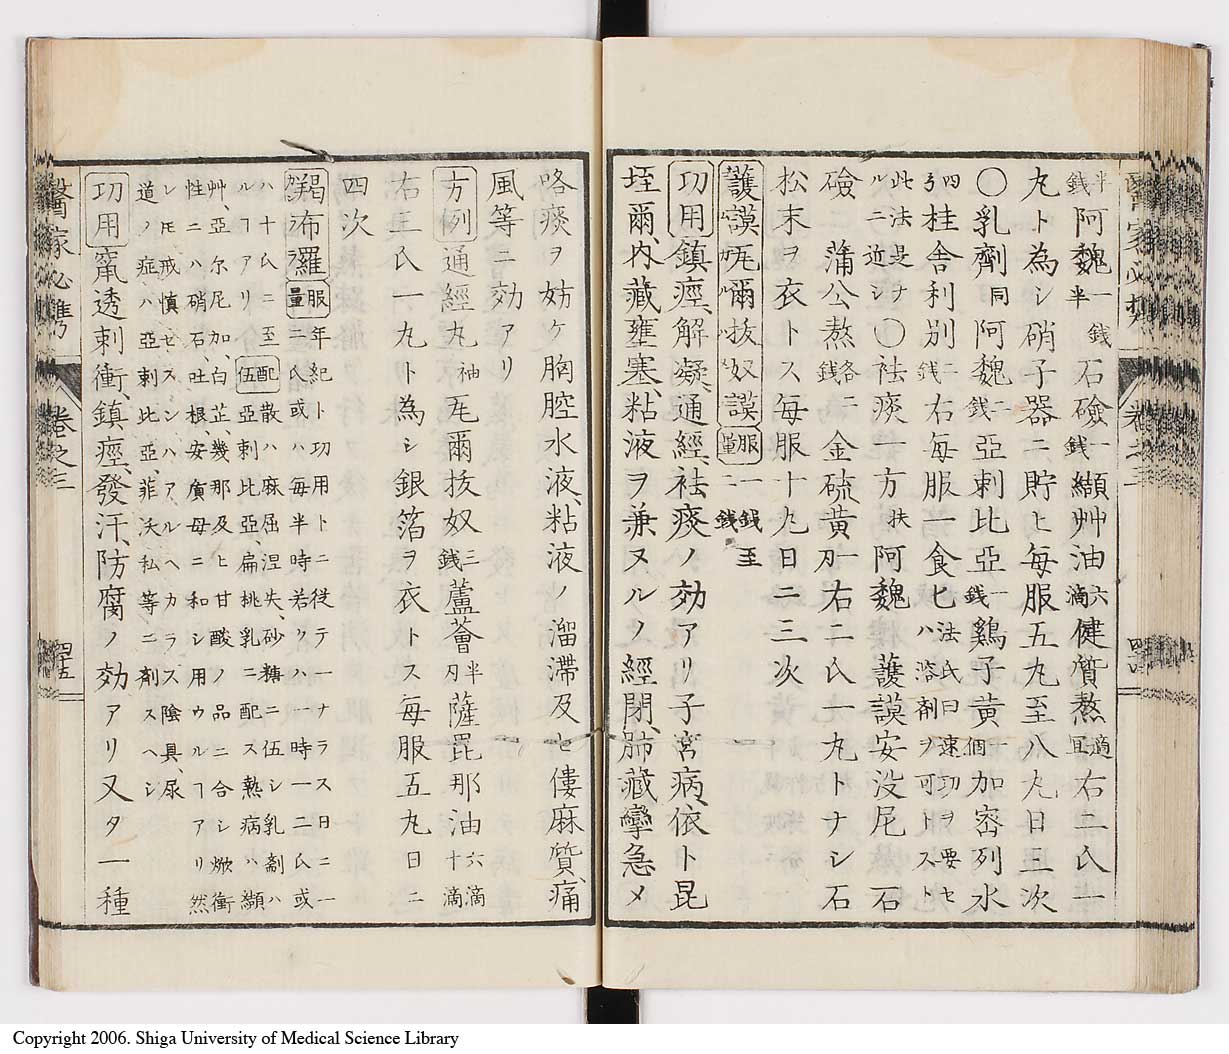 半錢阿魏一錢半石鹸一錢纈艸油六滴健質熬適宜右二氏一
丸ト為シ硝子器ニ貯ヒ每服五丸至八丸日三次
〇乳劑同阿魏二錢亞刺比亞一錢鷄子黃一個加密列水
四弓桂舍利別二錢右每服一食匕法氏曰速功ヲ要セハ溶劑ヲ可トスト
此法是ナルニ近シ〇祛痰一方扶阿魏護謨安没尼石
鹸蒲公熬各二錢金硫黃一刄右二氏一丸トナシ石
松末ヲ衣トス每服十丸日二三次
護謨厇爾抜奴謨服量一錢至二錢
功用鎮痙、解凝、通經、祛痰ノ効アリ子宮病、依卜昆
垤爾、内藏壅塞、粘液ヲ兼ヌルノ經閉、肺藏攣急メ
咯痰ヲ妨ケ胸腔水液、粘液ノ溜滯及ヒ僂麻質、痛
風等ニ効アリ
方例通經丸袖厇爾抜奴三錢蘆薈半刄薩毘那油六滴十滴
右五氏一丸ト為シ銀箔ヲ衣トス每服五丸日二
四次
羯布羅服量年紀ト功用トニ従テ一ナラス日ニ一二氏或ハ每半時若クハ一時一二氏或
ハ十氏ニ至ル配伍散ハ麻屈涅失、砂糖ニ伍シ乳劑ハ亞刺比亞、扁桃乳ニ配ス熱病ハ纈
艸、亞尓尼加、白芷、幾那及ヒ甘酸ノ品ニ合シ焮衝性ニハ硝石、吐根安質母ニ和シ用ウルヿアリ然
レ𪜈戒慎セスンハアルヘカラス陰具、尿道ノ症ハ亞刺比亞、菲沃私等ニ劑スヘシ
功用竄透刺衝、鎮痙、發汗、防腐ノ効アリ又タ一種
醫家必携
卷之三
四十五
Copyright 2006. Shiga University of Medical Science Library